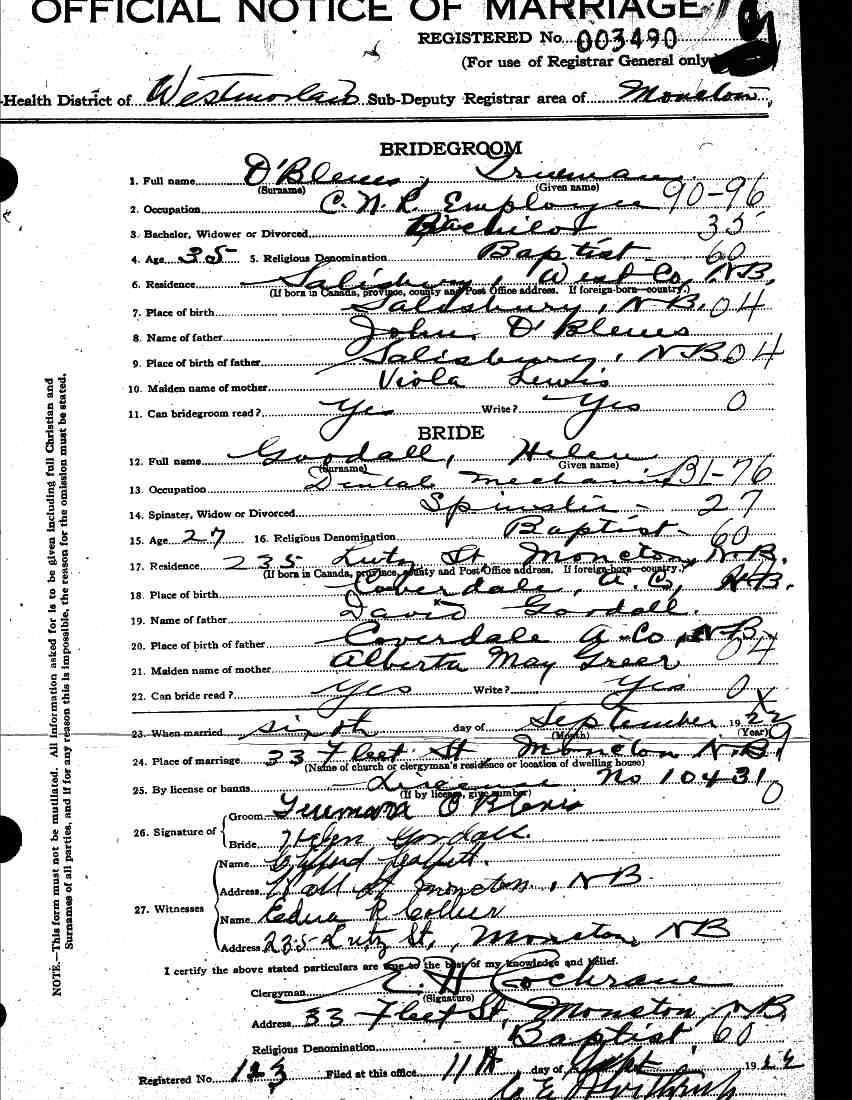 OFFICIAL NOTICE OF MARRIAGE
REGISTERED No. 003490
(For use of Registrar General only)
Health District of Westmorland Sub-Deputy Registrar area of Moncton
BRIDEGROOM
1. Full name D'Blenes, Trueman
(Surname) (Given name)
2. Occupation C.N.R. Employee 90-96
3. Bachelor, Widower or Divorced Bachelor 35
4. Age 35 5. Religious Denomination Baptist 60
6. Residence Salisbury, West Co, N.B.
(If born in Canada, province, county and Post Office address. If foreign-born—country.)
7. Place of birth Salisbury, N.B. 04
8. Name of father John D'Blenes
9. Place of birth of father Salisbury, N.B 04
10. Maiden name of mother Viola Lewis
11. Can bridegroom read? Yes Write? Yes 0
BRIDE
12. Full name Goodall, Helen
(Surname) Given name)
13. Occupation Dental mechanic B1-76
14. Spinster, Widow or Divorced Spinster - 27
15. Age 27 16. Religious Denomination Baptist 60
17. Residence 235 Lutz St Moncton, N.B.
(If born in Canada, province, county and Post Office address. If foreign-born—country.)
18. Place of birth Coverdale, A. Co, N.B.
19. Name of father David Goodall.
20. Place of birth of father Coverdale A. Co, N.B. 04
21. Maiden name of mother Alberta May Greer
22. Can bride read? Yes Write? Yes 0
23. When married sixth day of September 19
(Month) (Year)
24. Place of marriage 33 Fleet St Moncton N.B.
(Name of church or clergyman's residence or location of dwelling house)
25. By license or banns License No 10431 0
(If by license, give number)
26. Signature of Groom Trueman O'Blenis
Bride Helen Goodall.
27. Witnesses Name Clifford
Address St Moncton, N.B.
Name Edna R Collier
Address 235 Lutz St., Moncton NB
I certify the above stated particulars are true to the best of my knowledge and belief.
Clergyman E. H Cochrane
(Signature)
Address 33 Fleet St, Moncton NB
Religious Denomination Baptist 60
Registered No. 123 Filed at this office 11th day of Sept 19
NOTE.—This form must not be mutilated. All information asked for is to be given including full Christian and
Surnames of all parties, and if for any reason this is impossible, the reason for the omission must be stated.